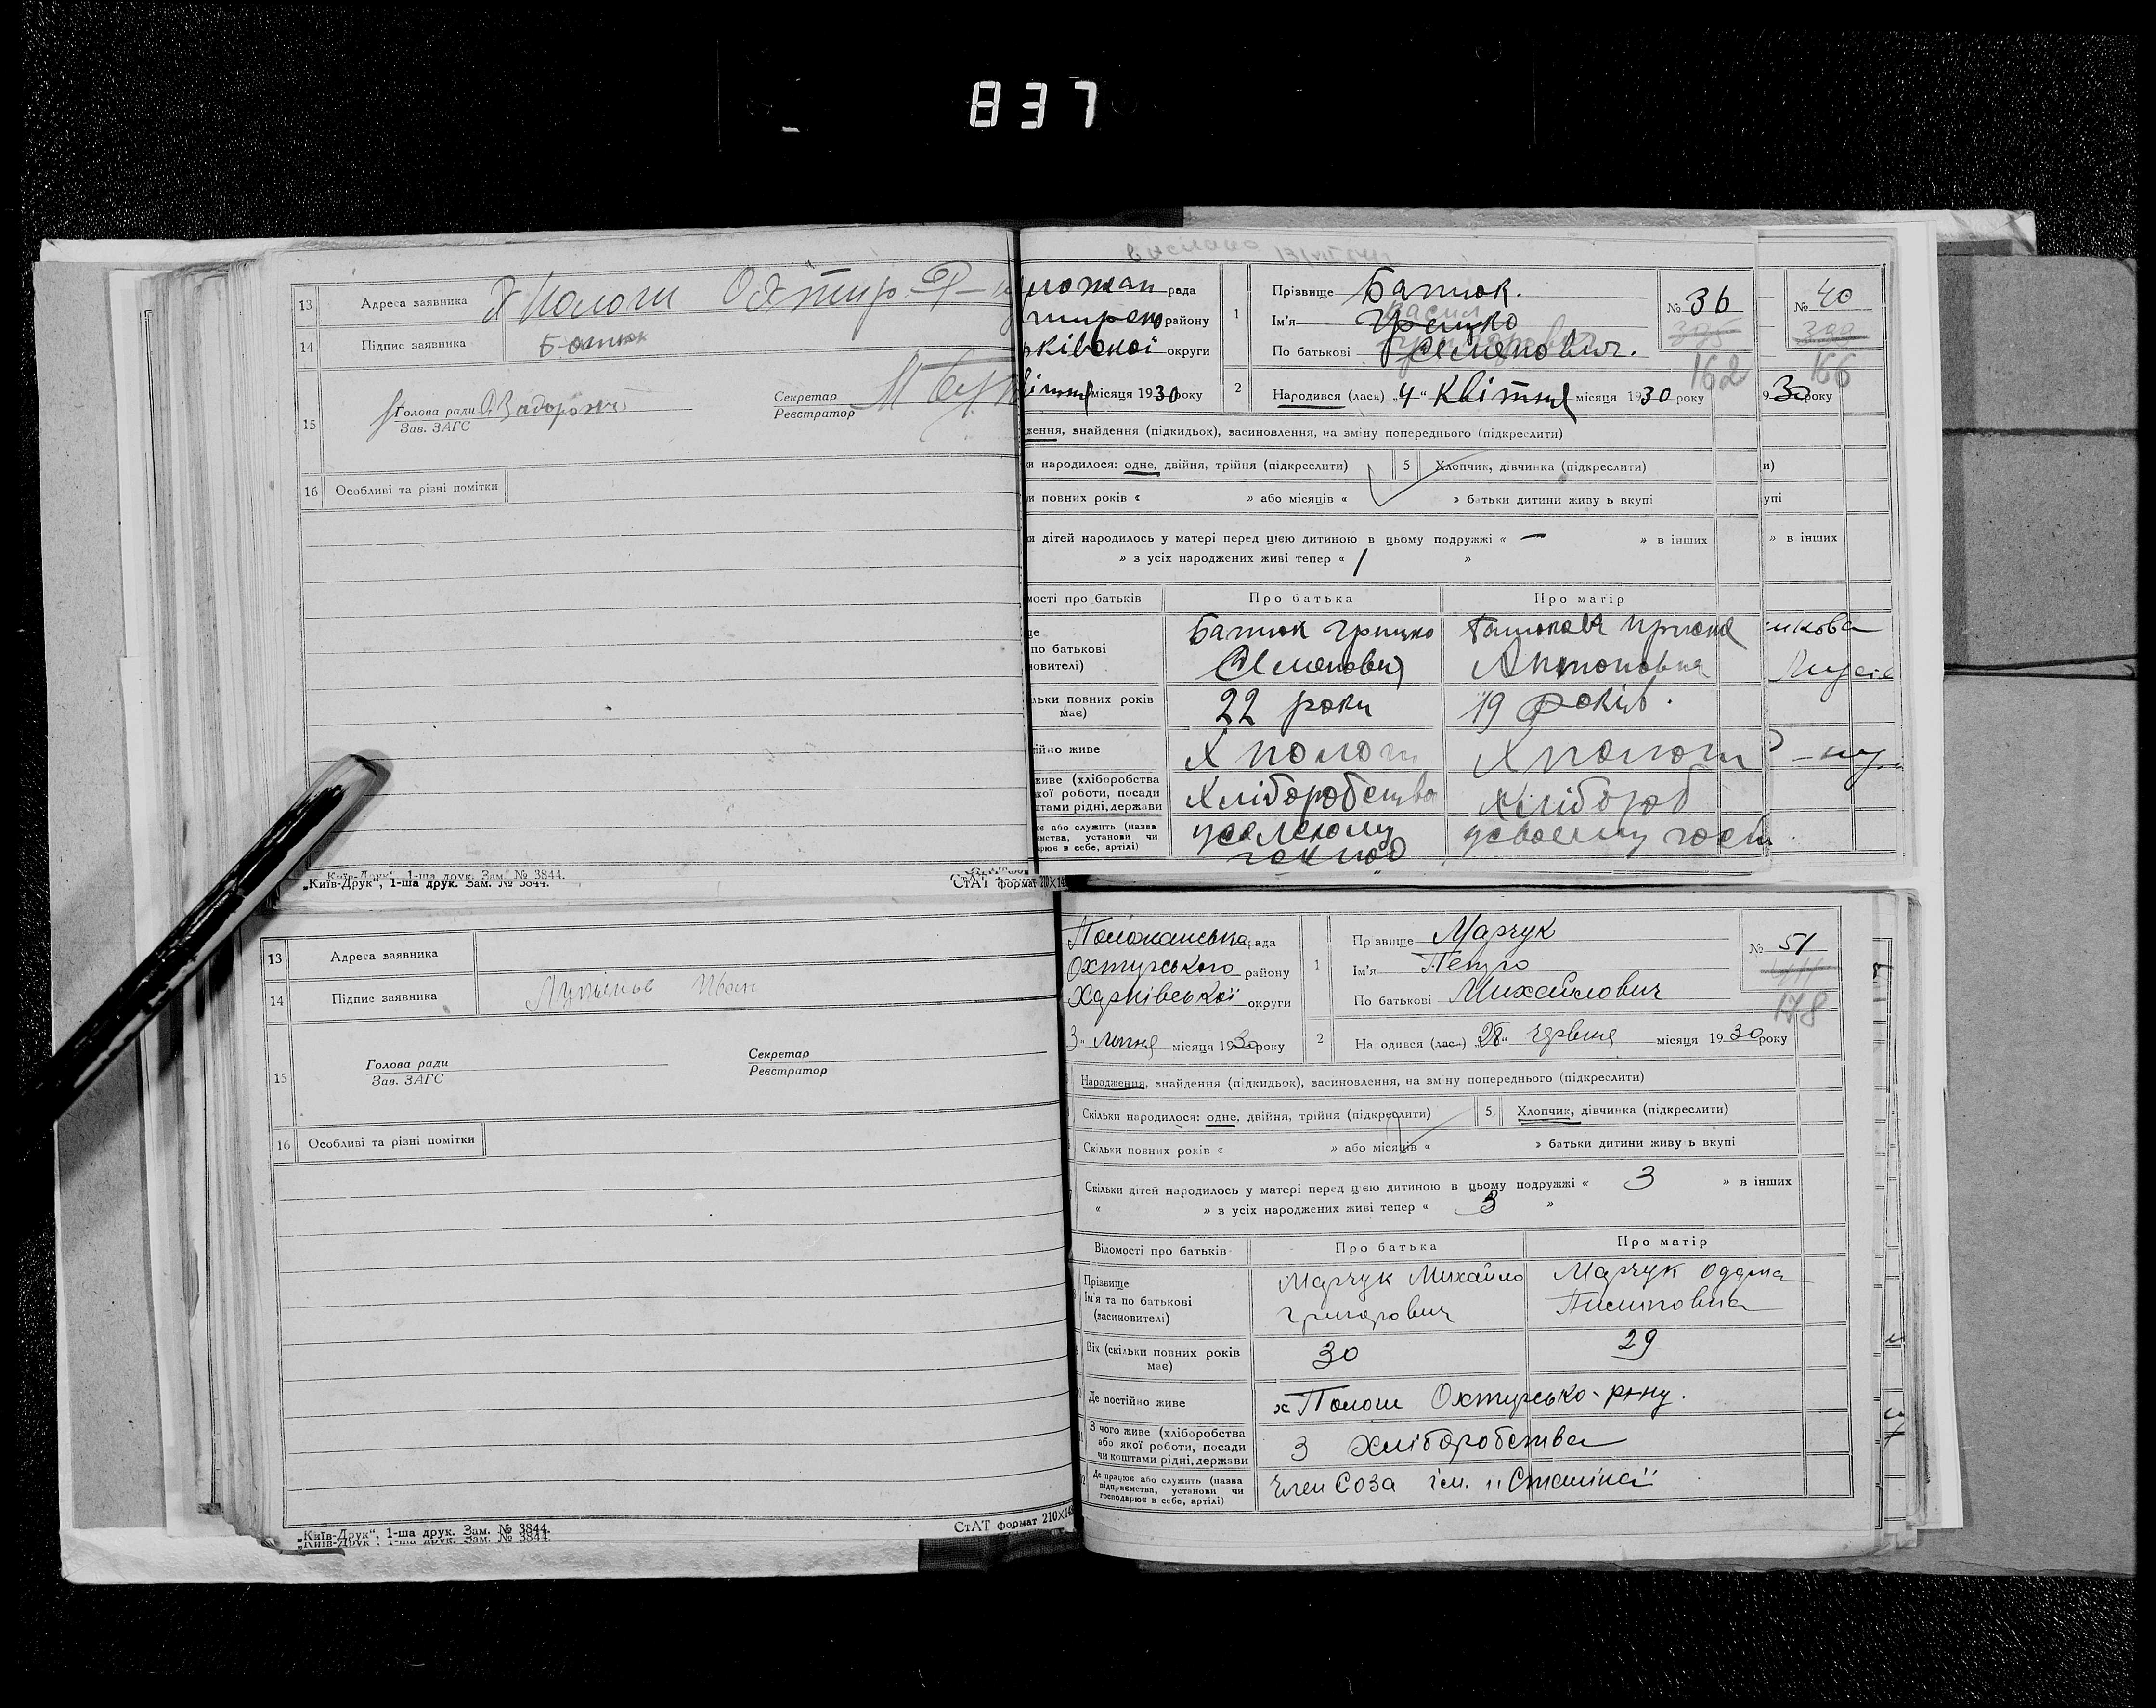 837
13 Адреса заявника Х Пологи Охтир. Р-
14 Підпис заявника Батюк
15 Голова ради Секретар
Зав. ЗАГС Реєстратор
16 Особливі та різні помітки
„Київ-Друк“, 1-ша друк. Зам. № 3844.
СтАТ формат 210×14
рада
району
ківської округи
місяця 1930 року
1 Прізвище Батюк.
Ім'я Грицко
По батькові Семенович.
№ 36
162
2 Народився (лась) „4“ Квітня місяця 1930 року
№ 40
166
930 року
ження, знайдення (підкидьок), засиновлення, на зміну попереднього (підкреслити)
и народилося: одне, двійня, трійня (підкреслити) 5 Хлопчик, дівчинка (підкреслити)
и повних років « » або місяців « » батьки дитини живу ь вкупі
и дітей народилось у матері перед цією дитиною в цьому подружжі « — » в інших
» з усіх народжених живі тепер « 1 »
мості про батьків Про батька Про матір
по батькові
новителі)
Батюк Грицко
Семенович
Антоновна
льки повних років має) 22 роки 19 років.
ійно живе Х Пологи Х Пологи
живе (хліборобства
кої роботи, посади
штами рідні, держави
Хліборобства Хлібороб
ює або служить (назва
ємства, установи чи
арює в себе, артілі)
13 Адреса заявника
14 Підпис заявника Іван
15 Голова ради Секретар
Зав. ЗАГС Реєстратор
16 Особливі та різні помітки
„Київ-Друк“, 1-ша друк. Зам. № 3844.
СтАТ формат 210×148
Положанська рада
Охтирського району
Харківської округи
3“ липня місяця 1930 року
1 Пр звище Марчук
Ім'я Петро
По батькові Михайлович
№ 51
178
2 На одився (лась) „28“ червня місяця 1930 року
Народження, знайдення (підкидьок), засиновлення, на зміну попереднього (підкреслити)
Скільки народилося: одне, двійня, трійня (підкреслити) 5 Хлопчик, дівчинка (підкреслити)
Скільки повних років « » або місяців « » батьки дитини живу ь вкупі
Скільки дітей народилось у матері перед цією дитиною в цьому подружжі « 3 » в інших
« » з усіх народжених живі тепер « 3 »
Відомості про батьків Про батька Про матір
Прізвище
Ім'я та по батькові
(засиновителі)
Марчук Михайло
Григорович
Марчук
Вік (скільки повних років має) 30 29
Де постійно живе х Пологи Охтирсько-р-ну.
З чого живе (хліборобства
або якої роботи, посади
чи коштами рідні, держави
З хліборобства
Де працює або служить (назва
підприємства, установи чи
господарює в себе, артілі)
Член Соза ім. „Сталіна“